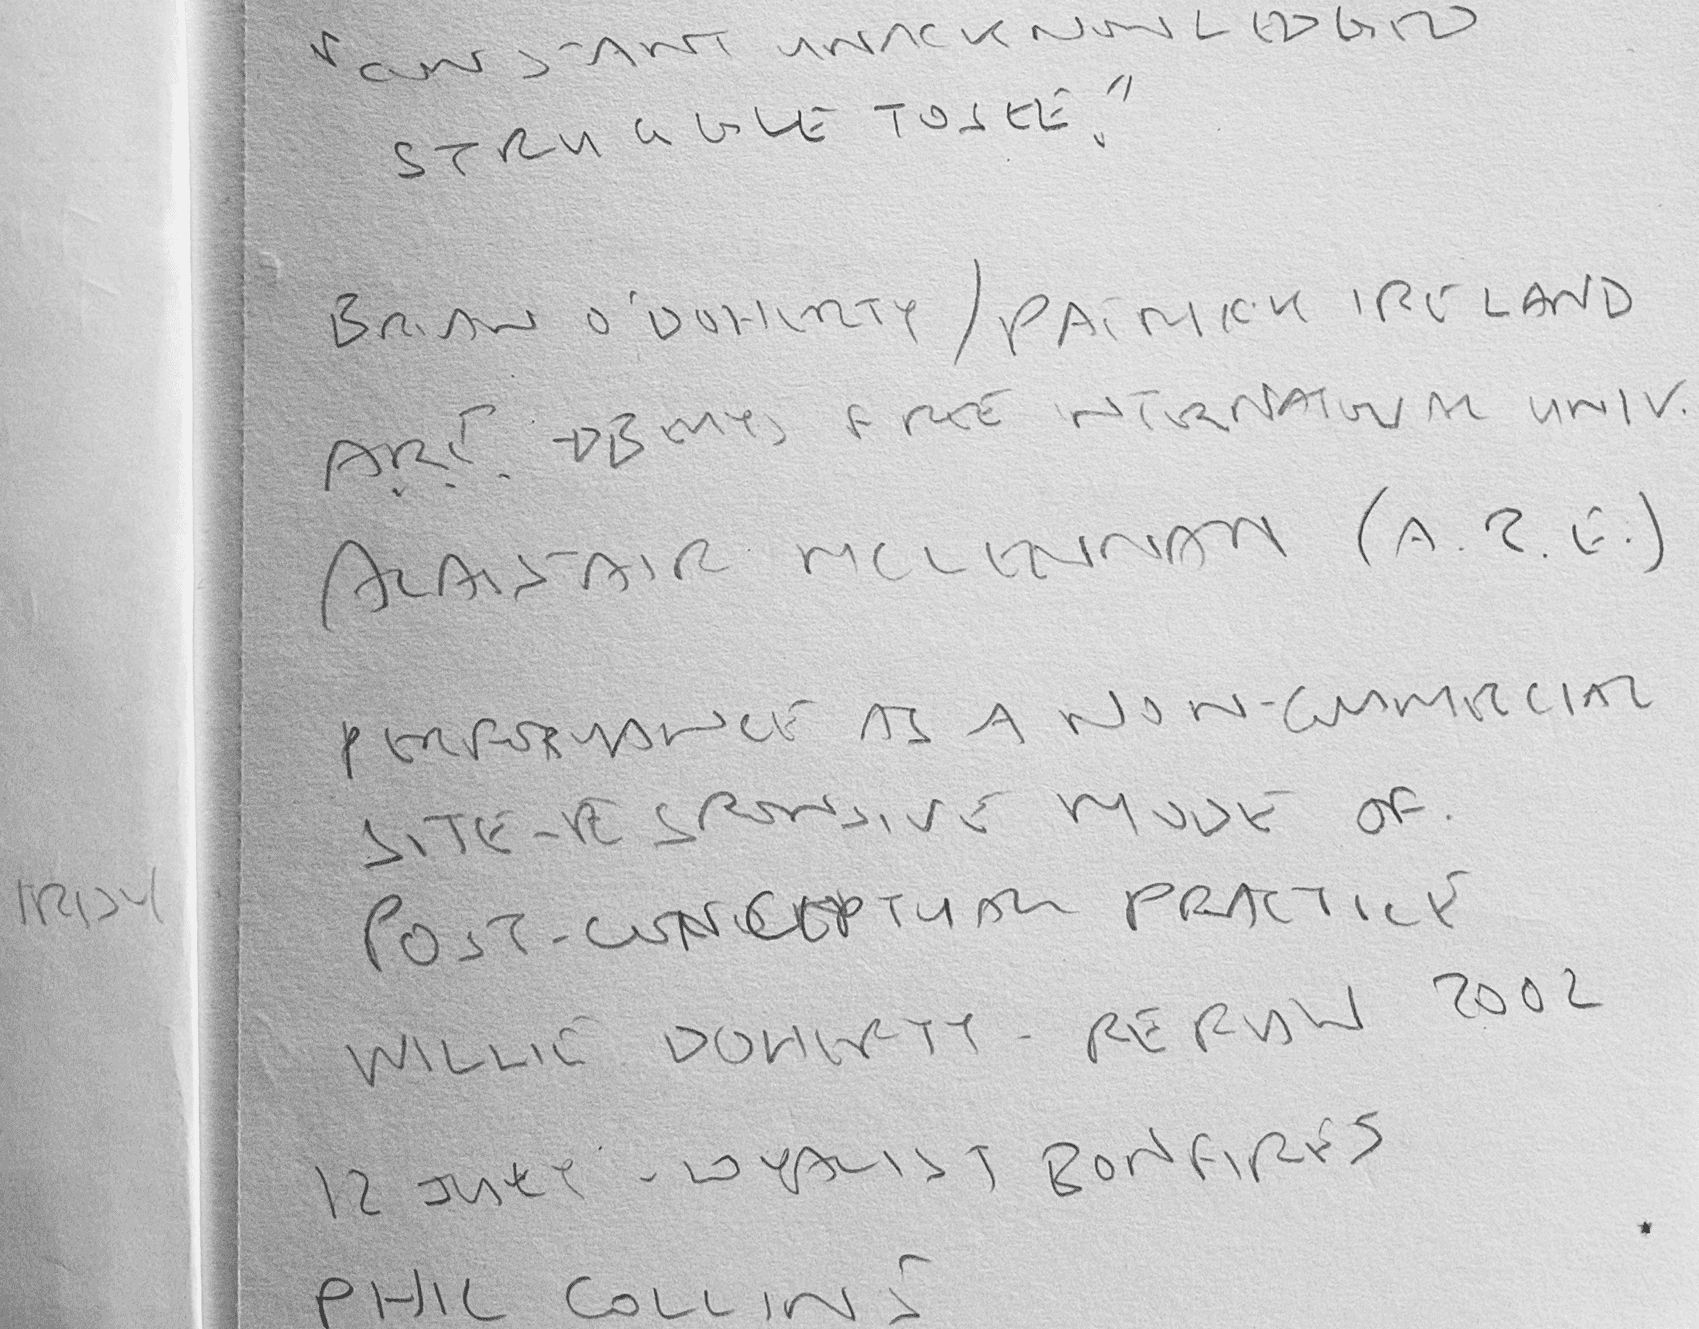 "CONSTANT UNACKNOWLEDGED
STRUGGLE TO SEE."
BRIAN O'DOHERTY / PATRICK IRELAND
ART. FREE INTERNATIONAL UNIV.
ALAISTAIR MCLENNAN (A.R.E.)
PERFORMANCE AS A NON-COMMERCIAL
SITE-RESPONSIVE MODE OF.
IRISH
POST-CONCEPTUAL PRACTICE
WILLIE DOHERTY - RERUN 2002
12 JULY - LOYALIST BONFIRES
PHIL COLLINS